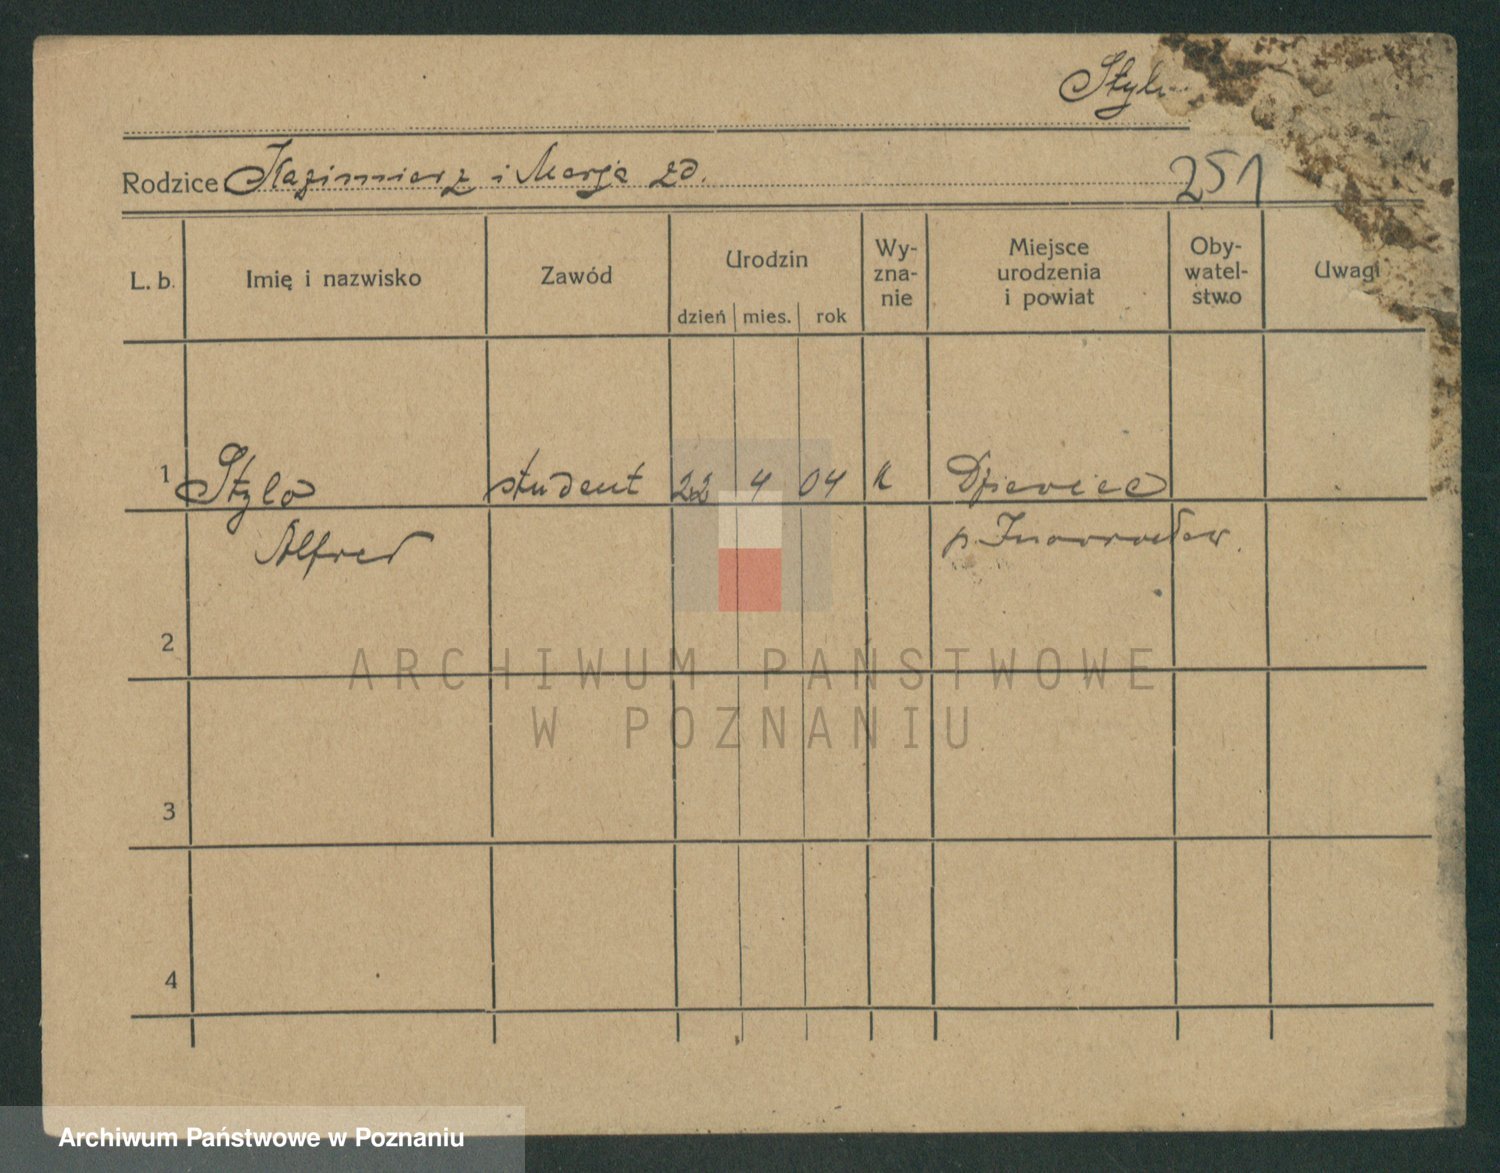 Rodzice Kazimierz i Marja zd.
251
L. b. Imię i nazwisko Zawód Urodzin dzień mies. rok Wy-zna-nie Miejsce urodzenia i powiat Oby-watel-stwo Uwagi
1 Stylo student 22 4 04 k
Alfred p. Inowrocław.
2
ARCHIWUM PAŃSTWOWE
W POZNANIU
3
4
Archiwum Państwowe w Poznaniu